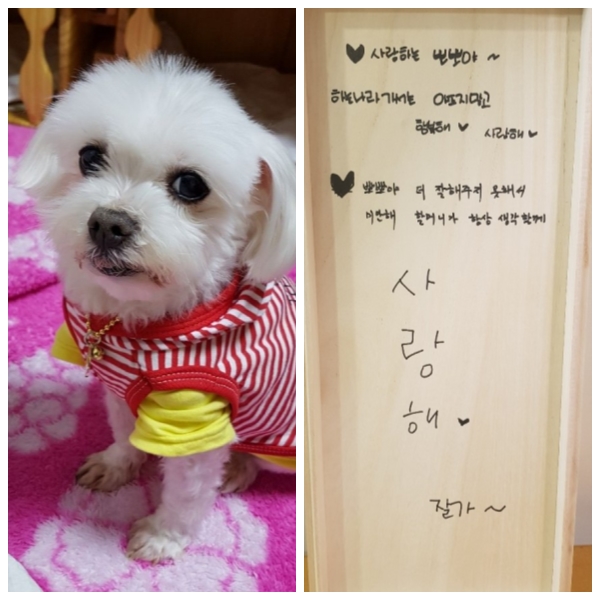 ♥ 사랑하는 뽀뽀야 ~
하늘나라가서는 아프지말고
행복해 ♥ 사랑해 ♥
♥ 뽀뽀야 더 잘해주지 못해서
미안해 할머니가 항상 생각할께
사
랑
해 ♥
잘가 ~